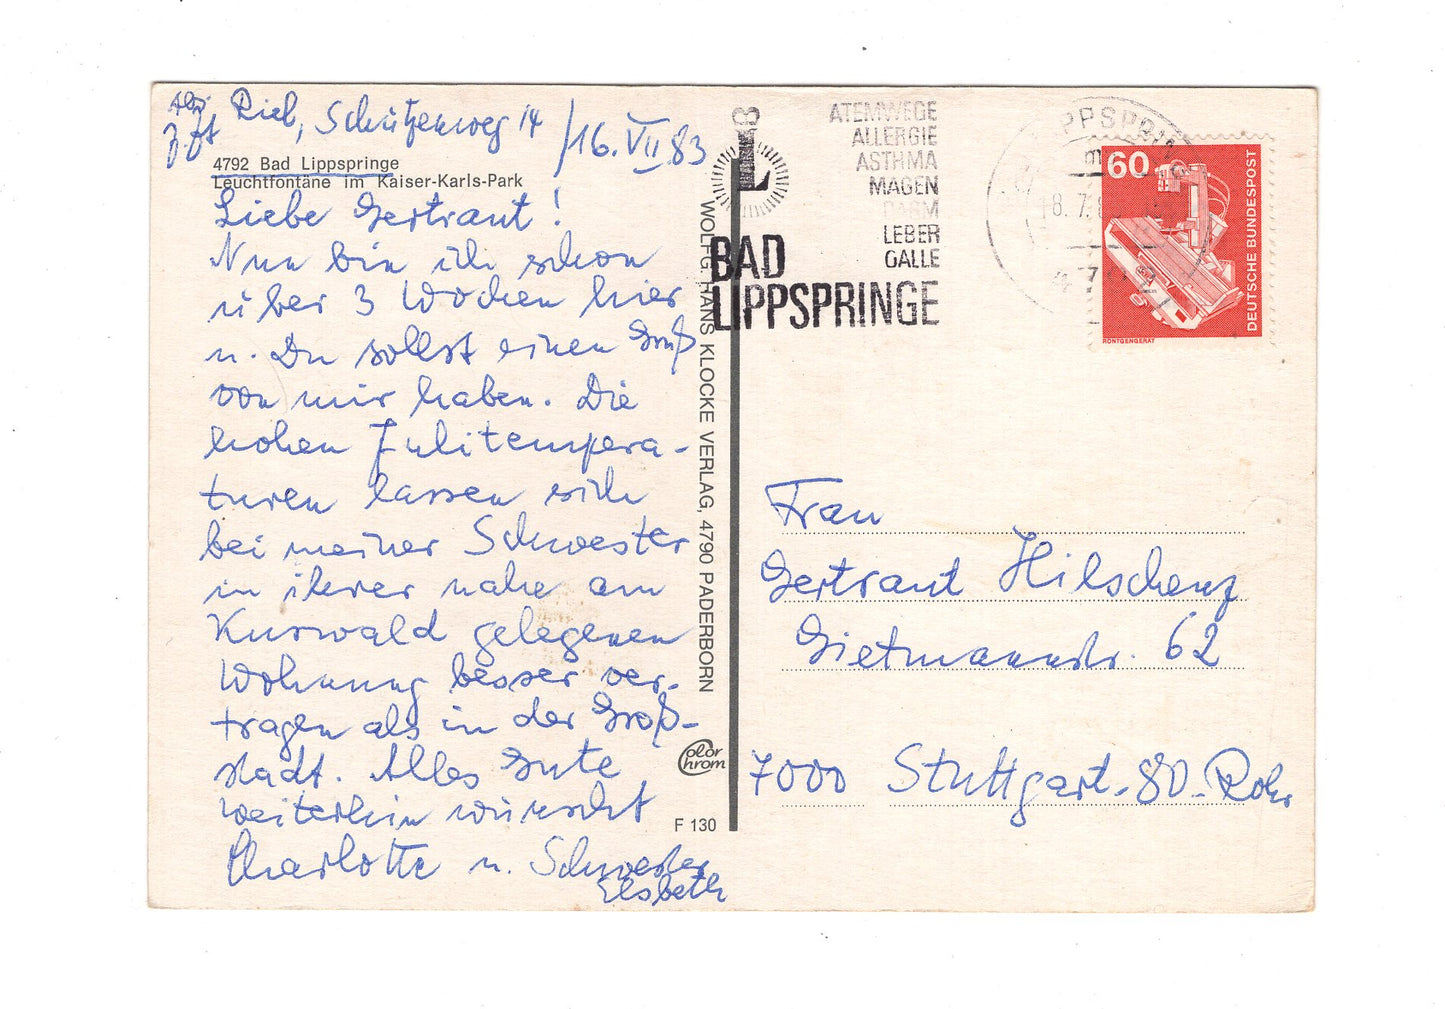 Abs. Rieb, Schützenweg 14 /16. VII 83
z. Zt
4792 Bad Lippspringe
Leuchtfontäne im Kaiser-Karls-Park
Liebe Gertraut!
Nun bin ich schon
über 3 Wochen hier
u. Du sollst einen Gruß
von mir haben. Die
hohen Julitempera-
turen lassen sich
bei meiner Schwester
in ihrer nahe am
Kurwald gelegenen
Wohnung besser ver-
tragen als in der Groß-
stadt. Alles Gute
weiterhin wünscht
Charlotte u. Schwester
Elsbeth
WOLFG. HANS KLOCKE VERLAG, 4790 PADERBORN
Color
Chrom
F 130
ATEMWEGE
ALLERGIE
ASTHMA
MAGEN
DARM
LEBER
GALLE
BAD
LIPPSPRINGE
18.7.8
4792
60
DEUTSCHE BUNDESPOST
RÖNTGENGERÄT
Frau
Gertraut Hilschenz
Gietmannstr. 62
7000 Stuttgart-80-Rohr